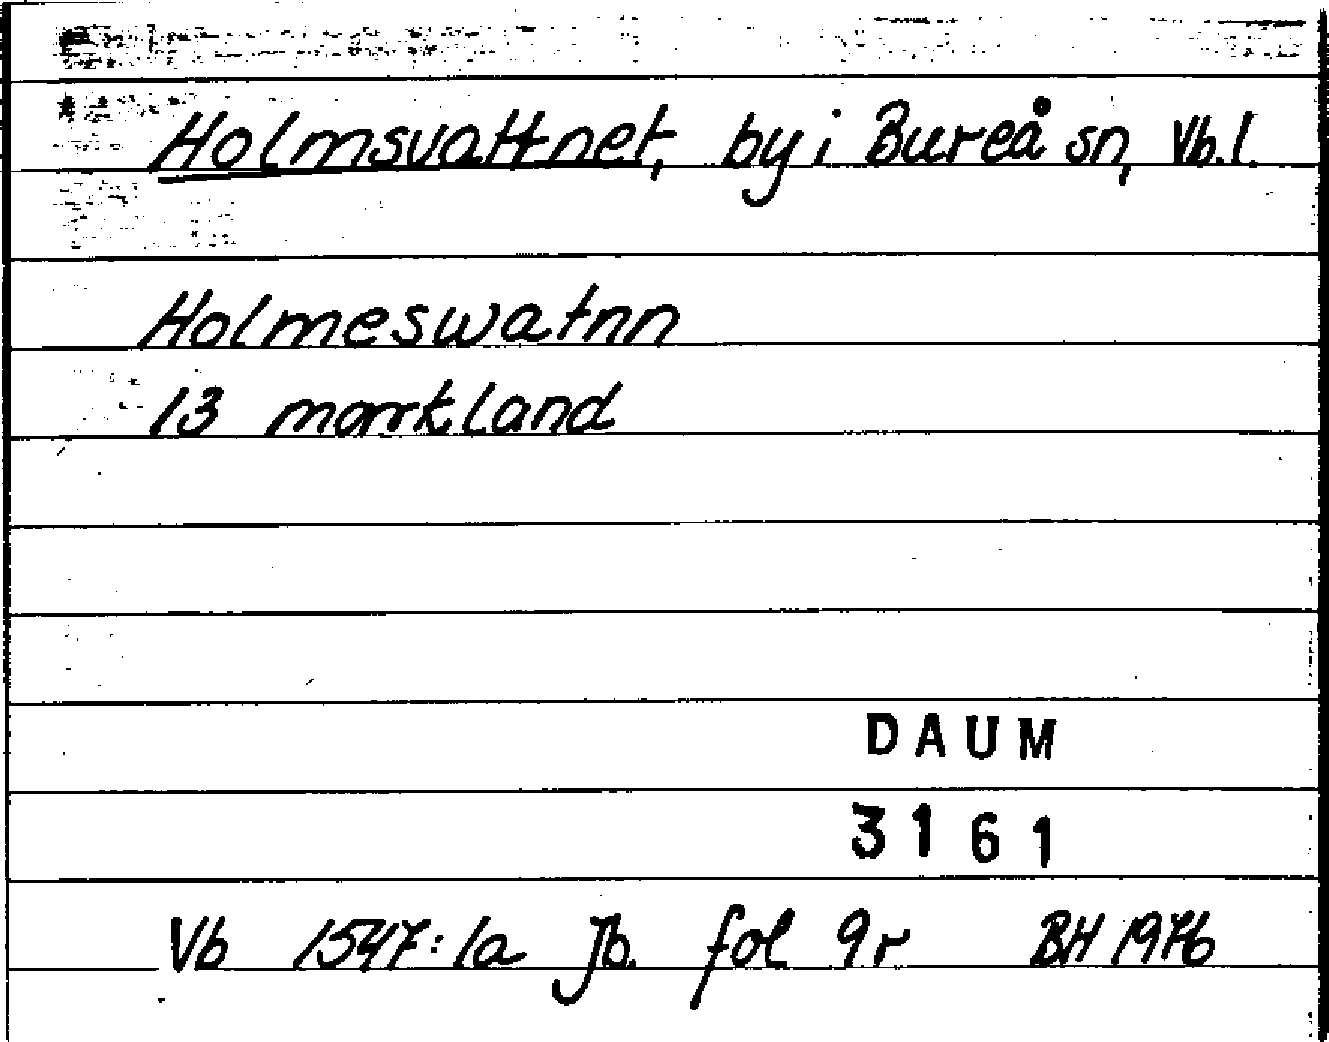 Holmsvattnet, by i Bureå sn, Vb.l.
Holmeswatnn
13 markland
DAUM
3161
Vb 1547:1a Jb. fol 9r BH 1976